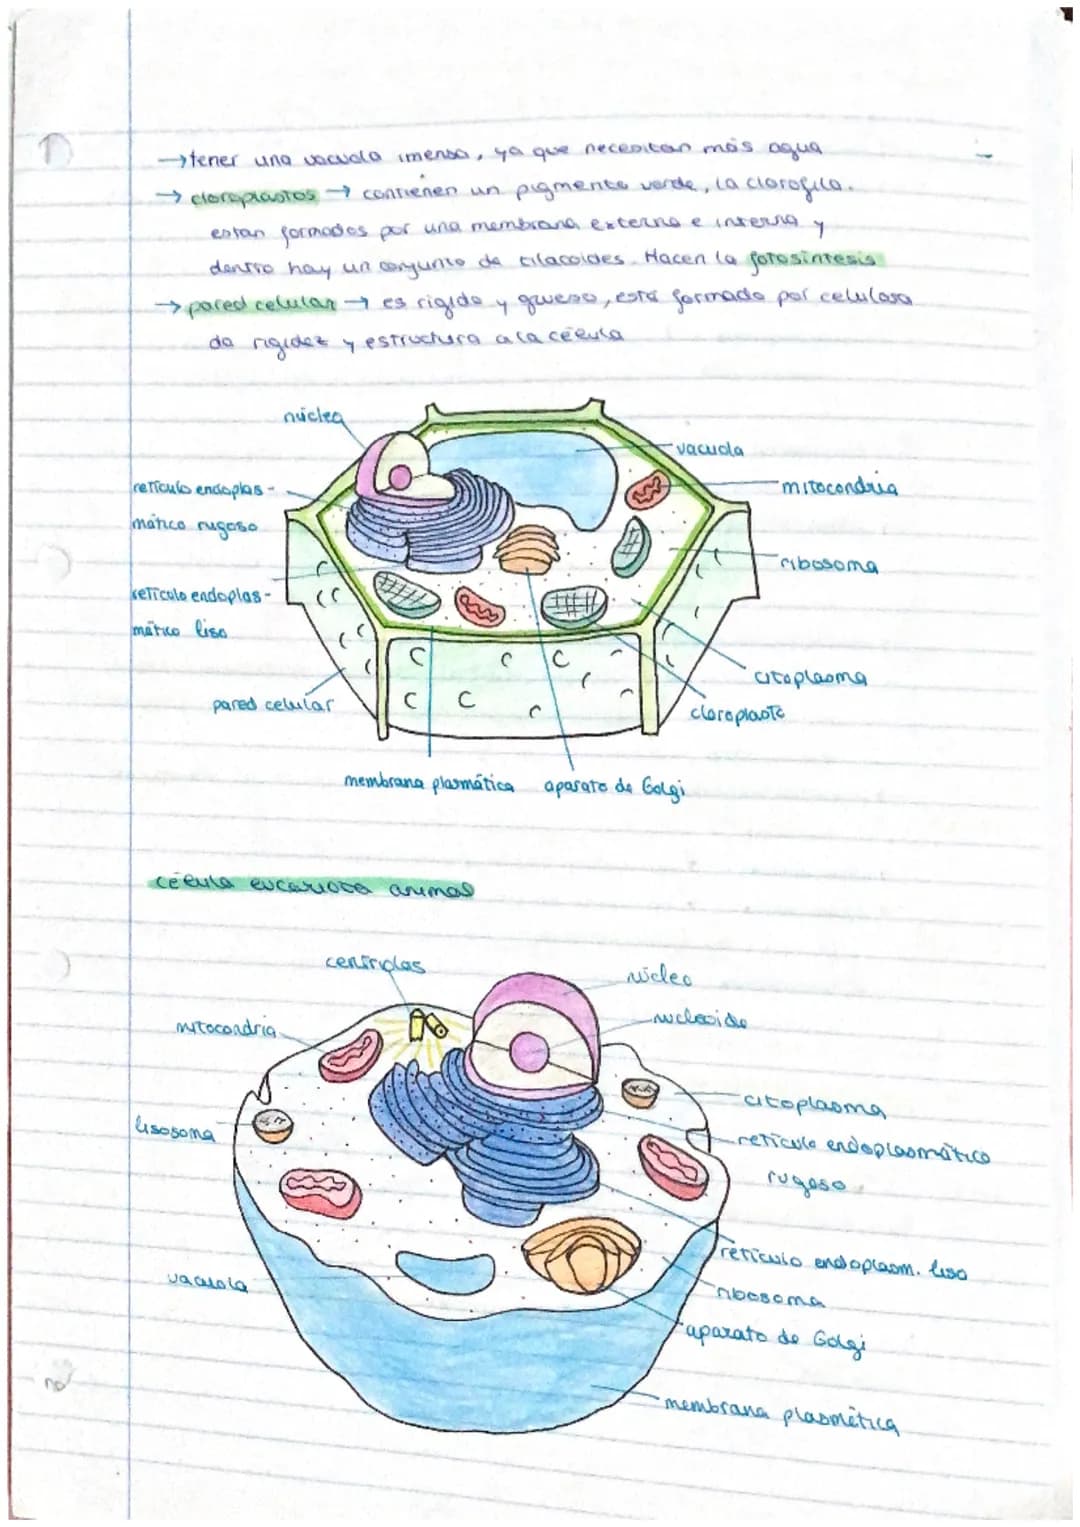 → tener una vacuola imensa, ya que necesitan más agua
→ cloroplastos → contienen un pigmento verde, la clorofila.
estan formados por una membrana externa e interna y
dentro hay un conjunto de tilacoides. Hacen la fotosíntesis
→ pared celular → es rigida y gruesa, esta formada por celulosa
da rigidez y estructura a la célula
núcleo
vacuola
retículo endoplas-
mático rugoso
mitocondria
ribosoma
retículo endoplas-
mático liso
citoplasma
pared celular
cloroplasto
membrana plasmática
aparato de Golgi
célula eucariota animal
centriolos
núcleo
nucleoide
mitocondria
citoplasma
lisosoma
retículo endoplasmático
rugoso
retículo endoplasm. liso
vacuola
ribosoma
aparato de Golgi
membrana plasmática